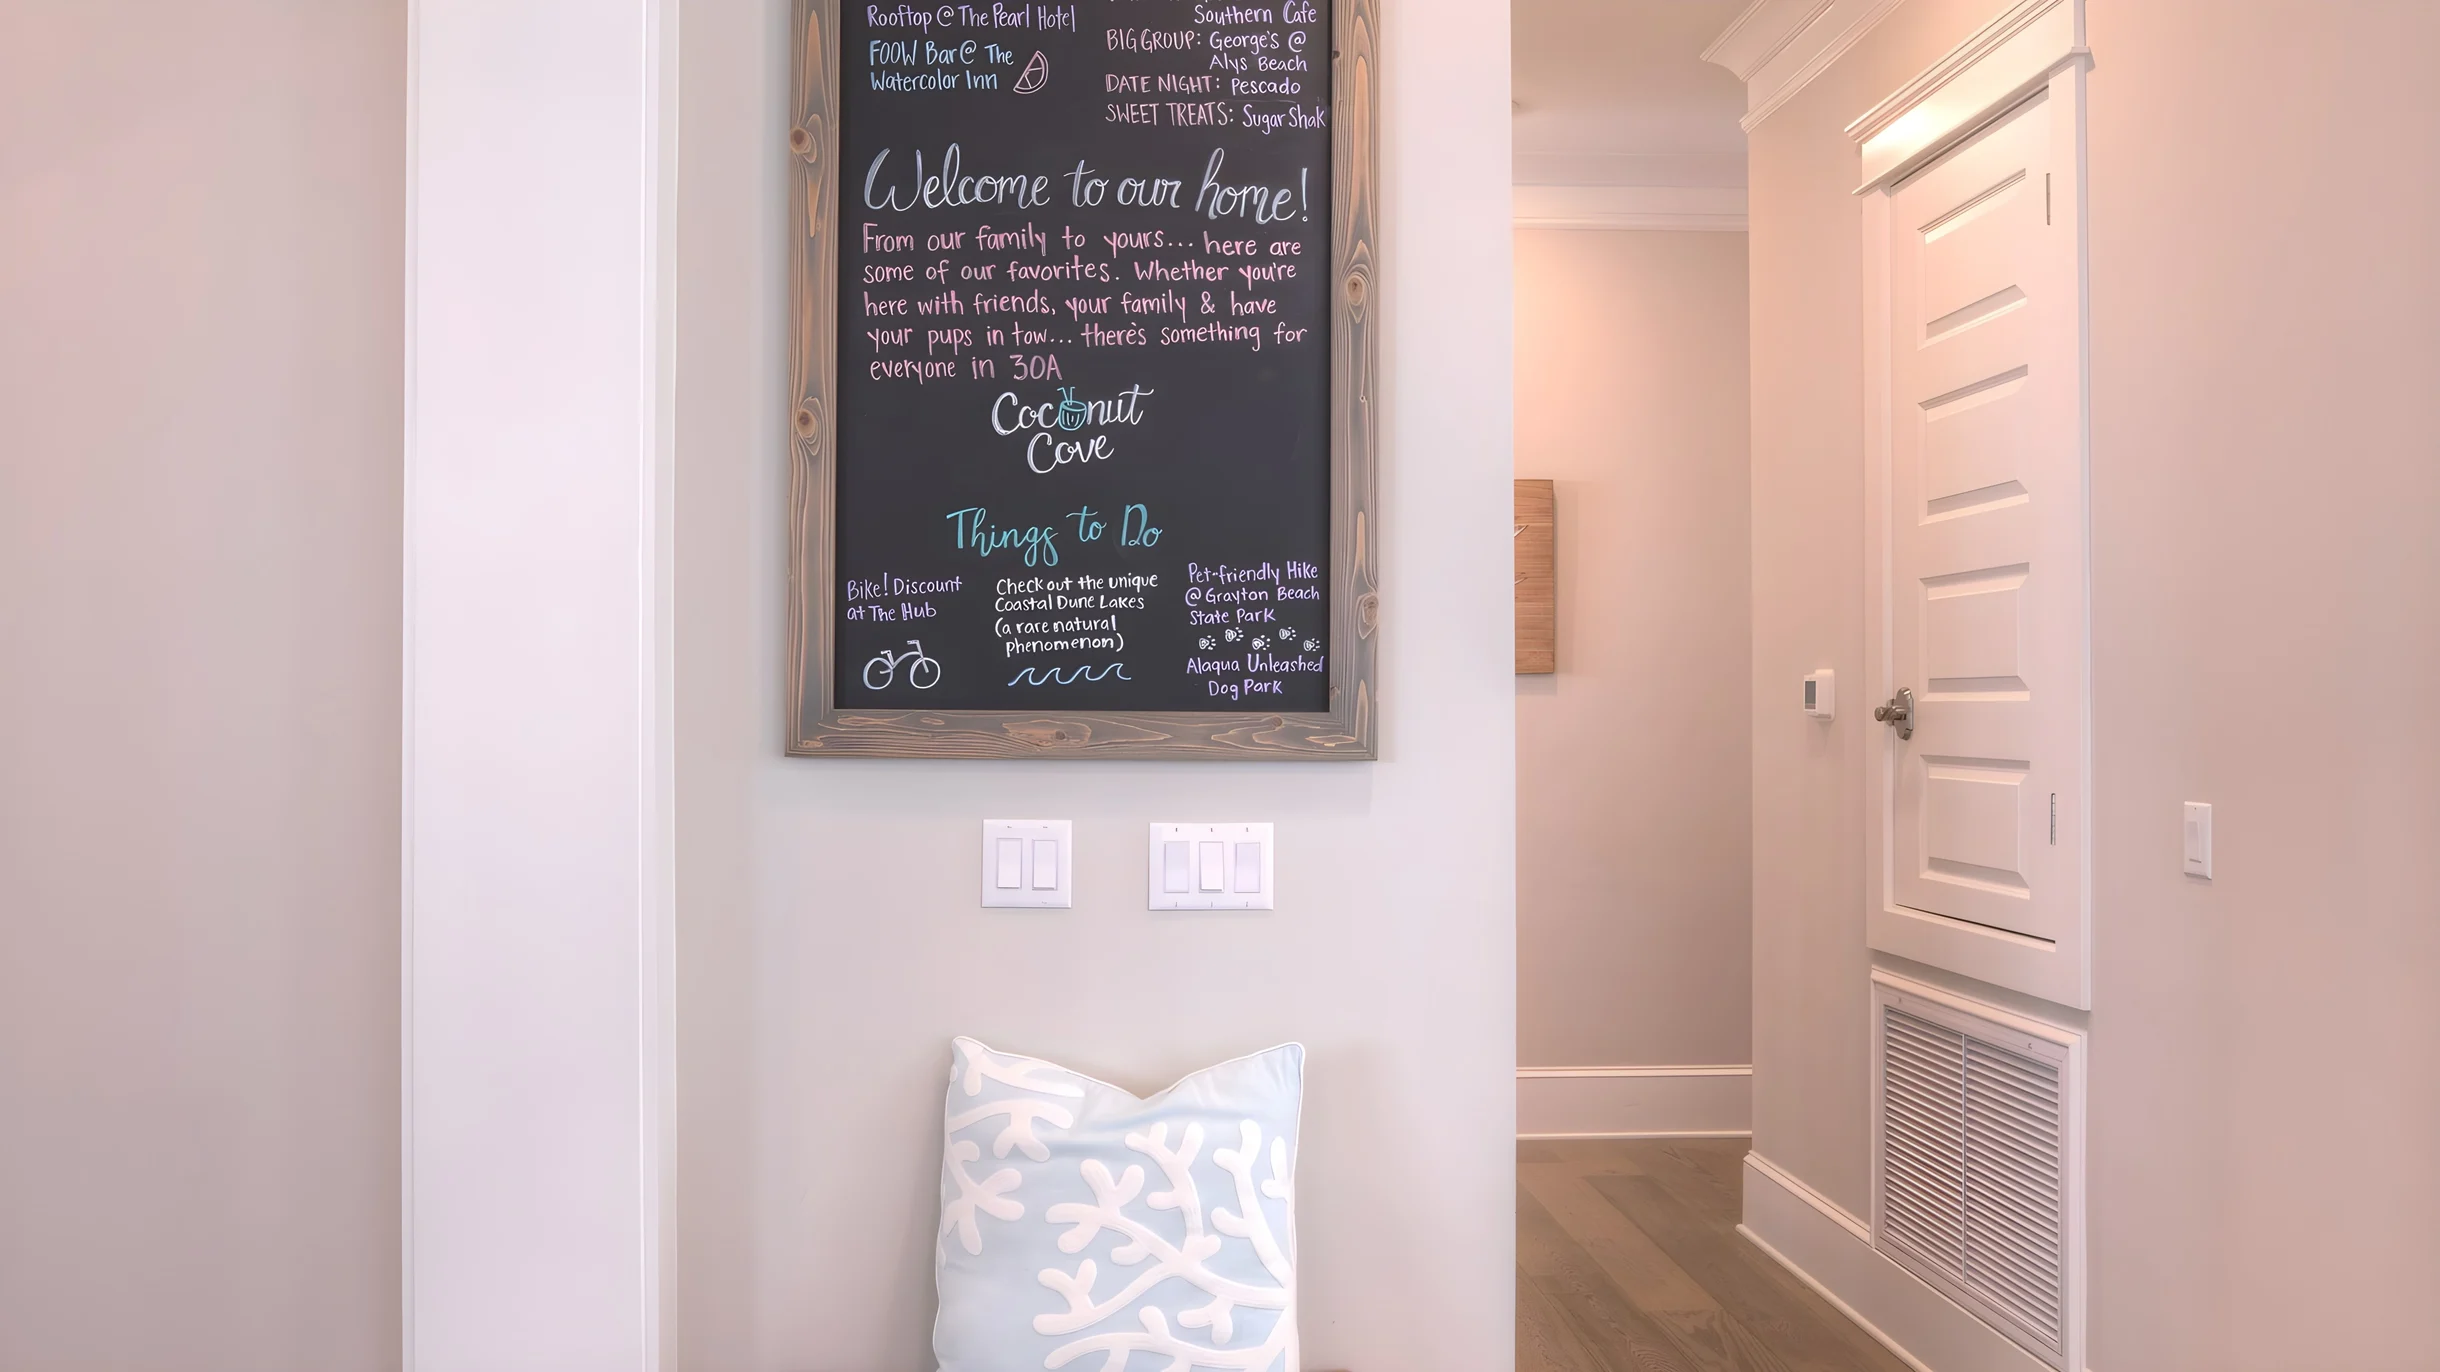 Rooftop @ The Pearl Hotel
FOOW Bar @ The
Watercolor Inn
Southern Cafe
BIG GROUP: George's @
Alys Beach
DATE NIGHT: Pescado
SWEET TREATS: Sugar Shak
Welcome to our home!
From our family to yours... here are
some of our favorites. Whether you're
here with friends, your family & have
your pups in tow... there's something for
everyone in 30A
Coconut
Cove
Things to Do
Bike! Discount
at The Hub
Check out the unique
Coastal Dune Lakes
(a rare natural
phenomenon)
Pet-friendly Hike
@ Grayton Beach
State Park
Alaqua Unleashed
Dog Park